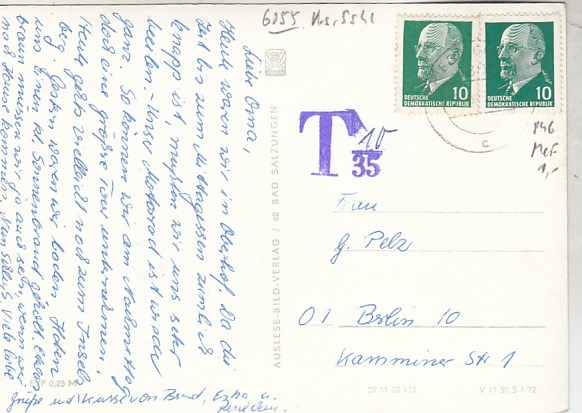 6055
Liebe Oma,
Heute waren wir in Oberhof. Da die
Zeit bis zum Mittagessen ziemlich
knapp ist, mußten wir uns sehr
beeilen. Unser Motorrad ist wieder
ganz. So können wir am Nachmittag
doch eine größere Tour unternehmen.
Heute gehts vielleicht noch zum Inselsberg.
Gestern waren wir baden. Haben
uns einen kl. Sonnenbrand geholt. Etwas
braun müssen wir ja aussehen, wenn wir
nach Hause kommen. Viele liebe
Grüße und Küsse von Bernd,
EVP 0,25 M
AUSLESE-BILD-VERLAG / 62 BAD SALZUNGEN
DEUTSCHE
DEMOKRATISCHE REPUBLIK
10
DEUTSCHE
DEMOKRATISCHE REPUBLIK
10
T 10
35
C
1,-
Frau
G. Pelz
01 Berlin 10
Kamminer Str 1
V 11 30 S 1 72